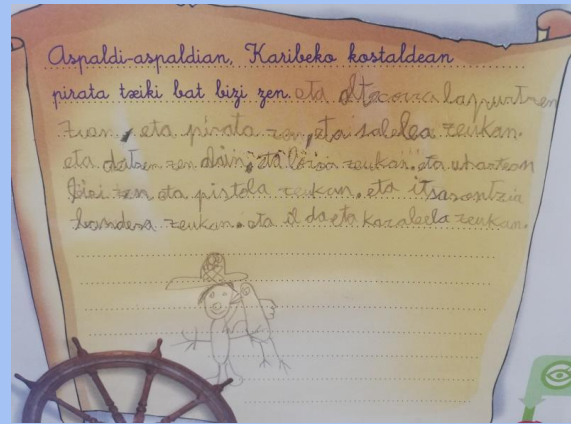 Aspaldi-aspaldian, Karibeko kostaldean
pirata txiki bat bizi zen. eta altxorra lapurtzen
zuen, eta pirata zen, eta sablea zeukan.
eta deitzen zen eta zeukan. eta uhartean
bizi zen eta pistola zeukan. eta itsasontzia
bandera zeukan. eta il da eta karabela zeukan.